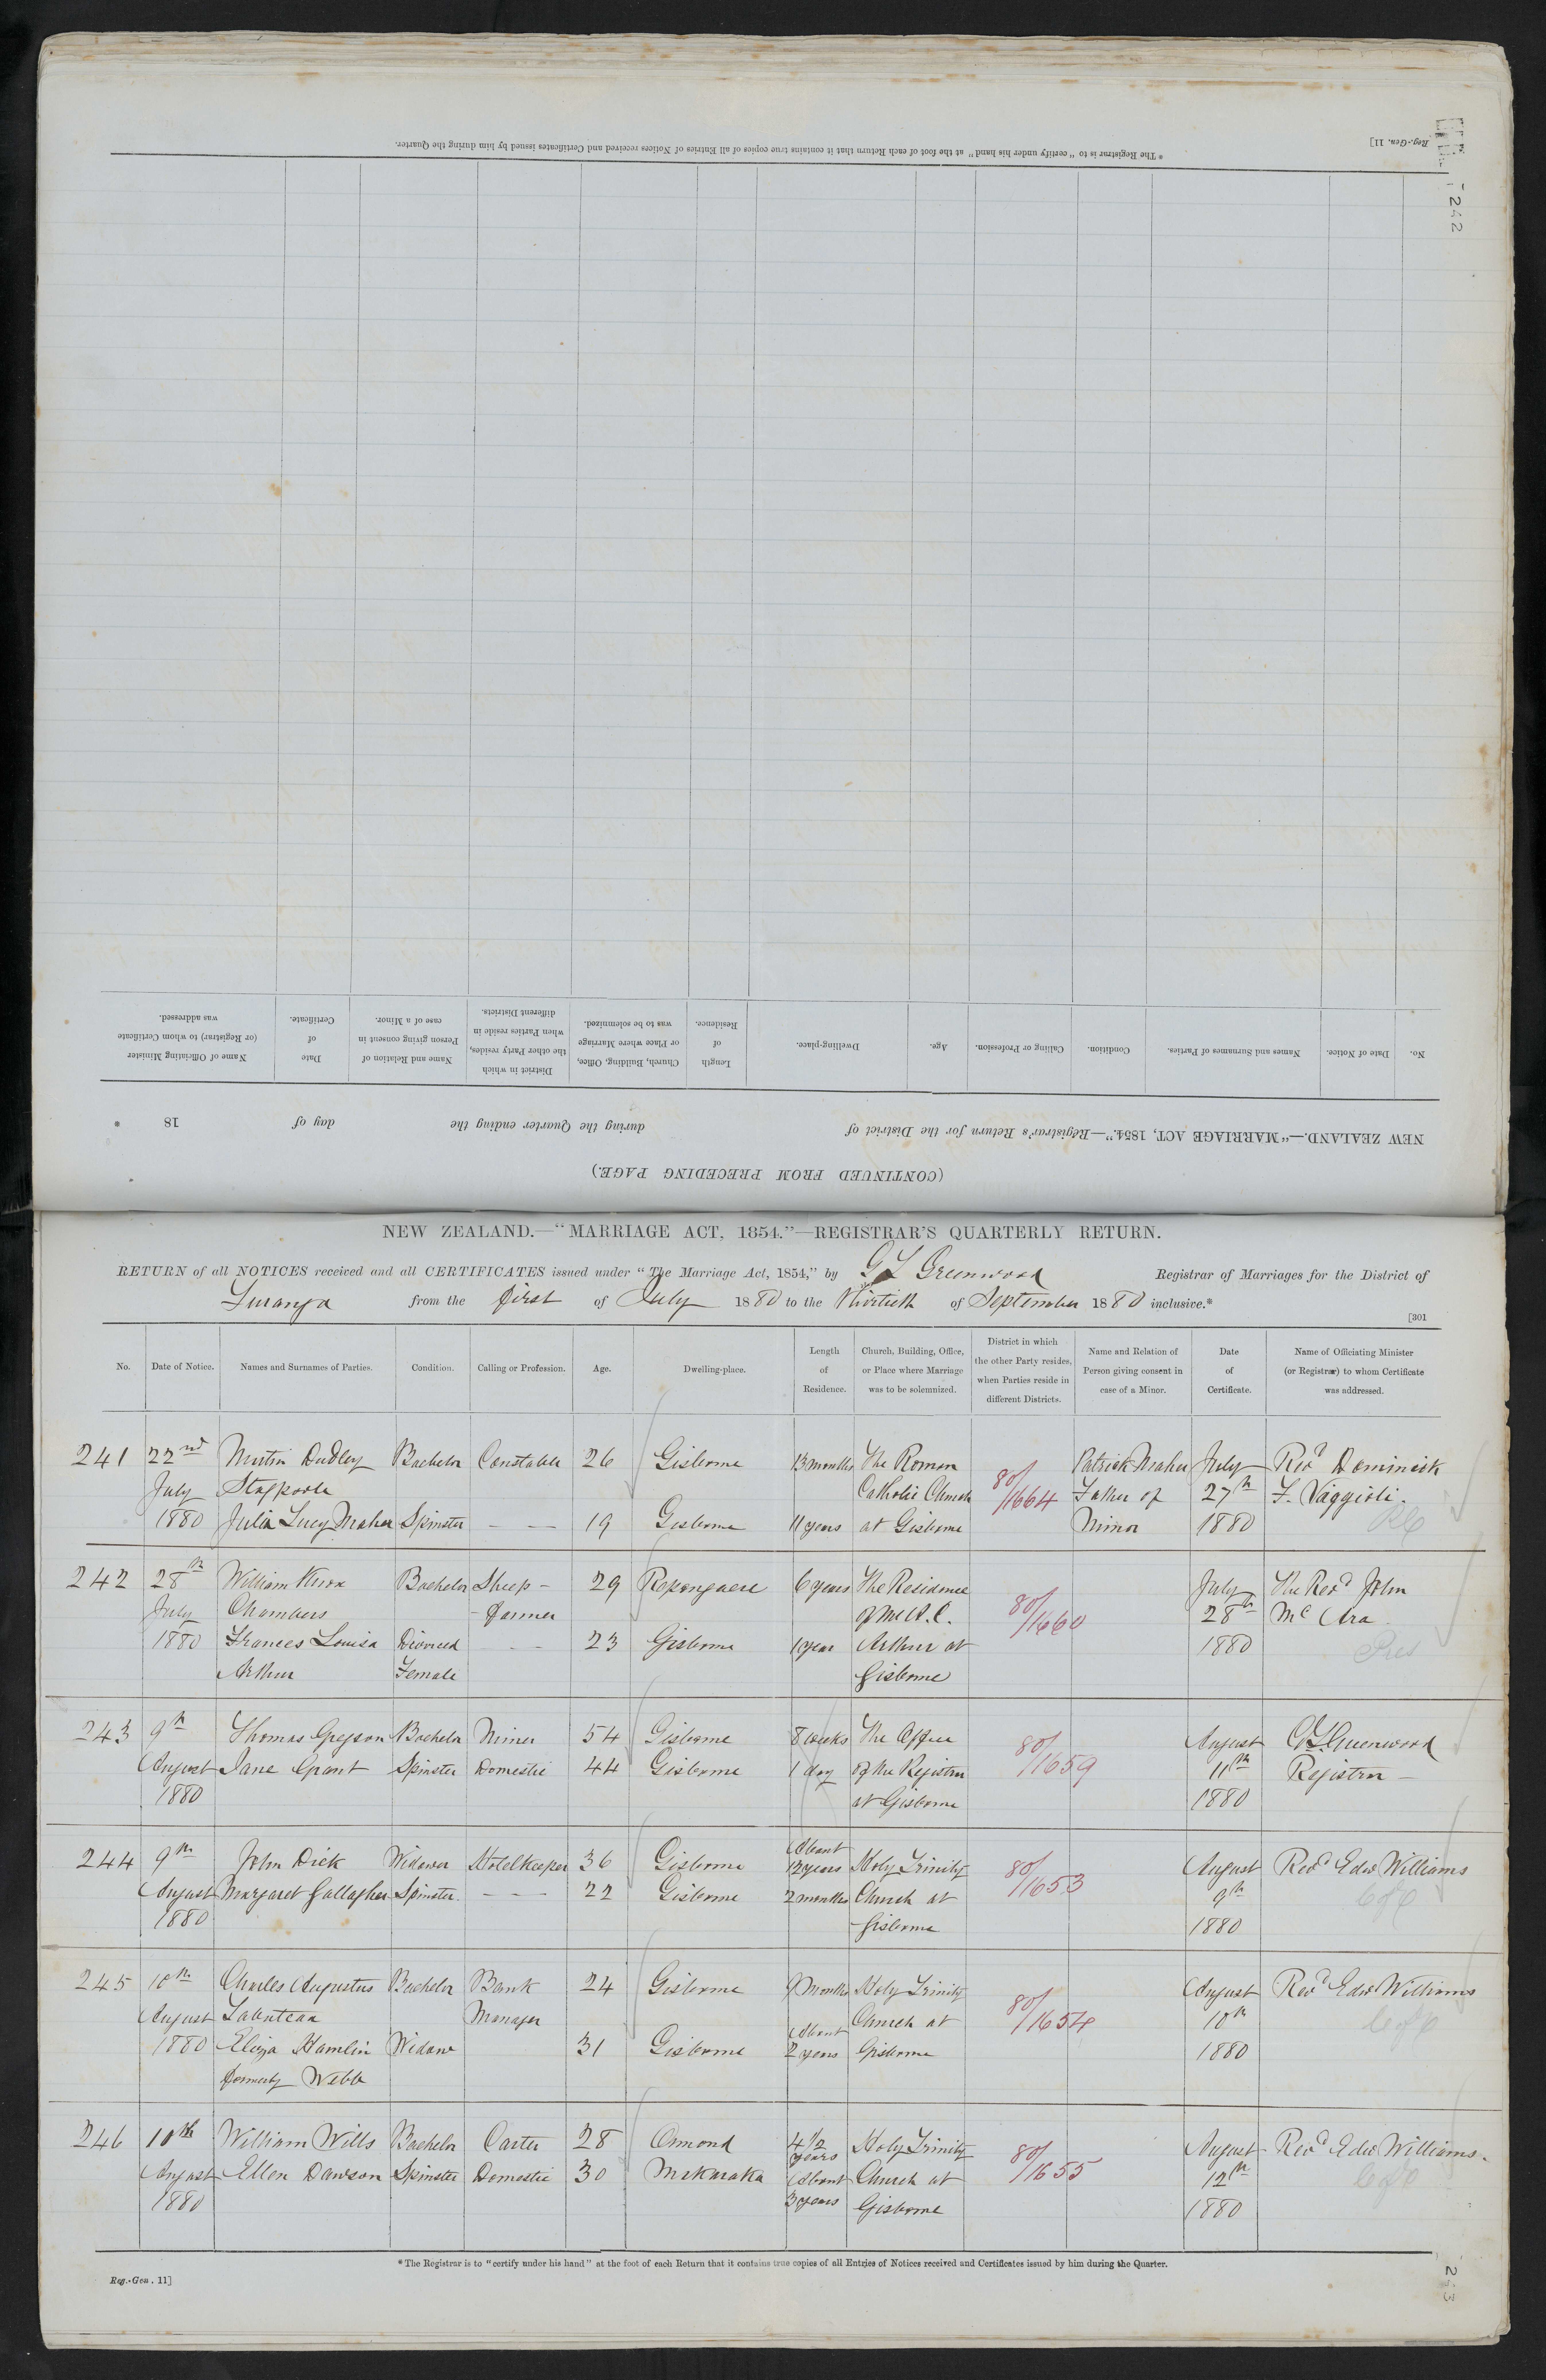 * The Registrar is to "certify under his hand" at the foot of each Return that it contains true copies of all Entries of Notices received and Certificates issued by him during the Quarter.
Reg.-Gen. 11]
242
No.
Date of Notice.
Names and Surnames of Parties.
Condition.
Calling or Profession.
Age.
Dwelling-place.
Length of Residence.
Church, Building, Office, or Place where Marriage was to be solemnized.
District in which the other Party resides, when Parties reside in different Districts.
Name and Relation of Person giving consent in case of a Minor.
Date of Certificate.
Name of Officiating Minister (or Registrar) to whom Certificate was addressed.
NEW ZEALAND.—"MARRIAGE ACT, 1854."—Registrar's Return for the District of during the Quarter ending the day of 18 *
(CONTINUED FROM PRECEDING PAGE.)
NEW ZEALAND.—"MARRIAGE ACT, 1854."—REGISTRAR'S QUARTERLY RETURN.
RETURN of all NOTICES received and all CERTIFICATES issued under "The Marriage Act, 1854," by G L Greenwood Registrar of Marriages for the District of
Turanga from the first of July 1880 to the thirtieth of September 1880 inclusive.*
[301
No.
Date of Notice.
Names and Surnames of Parties.
Condition.
Calling or Profession.
Age.
Dwelling-place.
Length of Residence.
Church, Building, Office, or Place where Marriage was to be solemnized.
District in which the other Party resides, when Parties reside in different Districts.
Name and Relation of Person giving consent in case of a Minor.
Date of Certificate.
Name of Officiating Minister (or Registrar) to whom Certificate was addressed.
241 22nd Martin Dudley Bachelor Constable 26 Gisborne 13 months The Roman Patrick Maher July Revd Dominick
July Stagpoole Catholic Church 80/1664 Father of 27th F. Vaggioli.
1880 Julia Lucy Maher Spinster — — 19 Gisborne 11 years at Gisborne Minor 1880 RC
242 28th William Knox Bachelor Sheep- 29 Repongaere 6 years The Residence July The Revd John
July Chambers -farmer of Mr A. C. 80/1660 28th Mc Ara
1880 Frances Louisa Divorced — — 23 Gisborne 1 year Arthur at 1880 Pres
Arthur Female Gisborne
243 9th Thomas Gregson Bachelor Miner 54 Gisborne 8 weeks The Office 80/1659 August G L Greenwood
August Jane Grant Spinster Domestic 44 Gisborne 1 day of the Registrar 11th Registrar —
1880 at Gisborne 1880
244 9th John Dick Widower Hotelkeeper 36 Gisborne About 12 years Holy Trinity 80/1653 August Revd Edwd Williams
August Margaret Gallagher Spinster. — — 22 Gisborne 2 months Church at 9th C of E
1880 Gisborne 1880
245 10th Charles Augustus Bachelor Bank 24 Gisborne 9 Months Holy Trinity August Revd Edwd Williams
August Manager Church at 80/1654 10th C of E
1880 Eliza Hamlin Widow 31 Gisborne About 2 years Gisborne 1880
formerly Webb
246 10th William Wills Bachelor Carter 28 Ormond 4 1/2 years Holy Trinity 80/1655 August Revd Edwd Williams.
August Ellen Dawson Spinster Domestic 30 Makaraka About 3 years Church at 12th C of E
1880 Gisborne 1880
* The Registrar is to "certify under his hand" at the foot of each Return that it contains true copies of all Entries of Notices received and Certificates issued by him during the Quarter.
Reg.-Gen. 11]
243